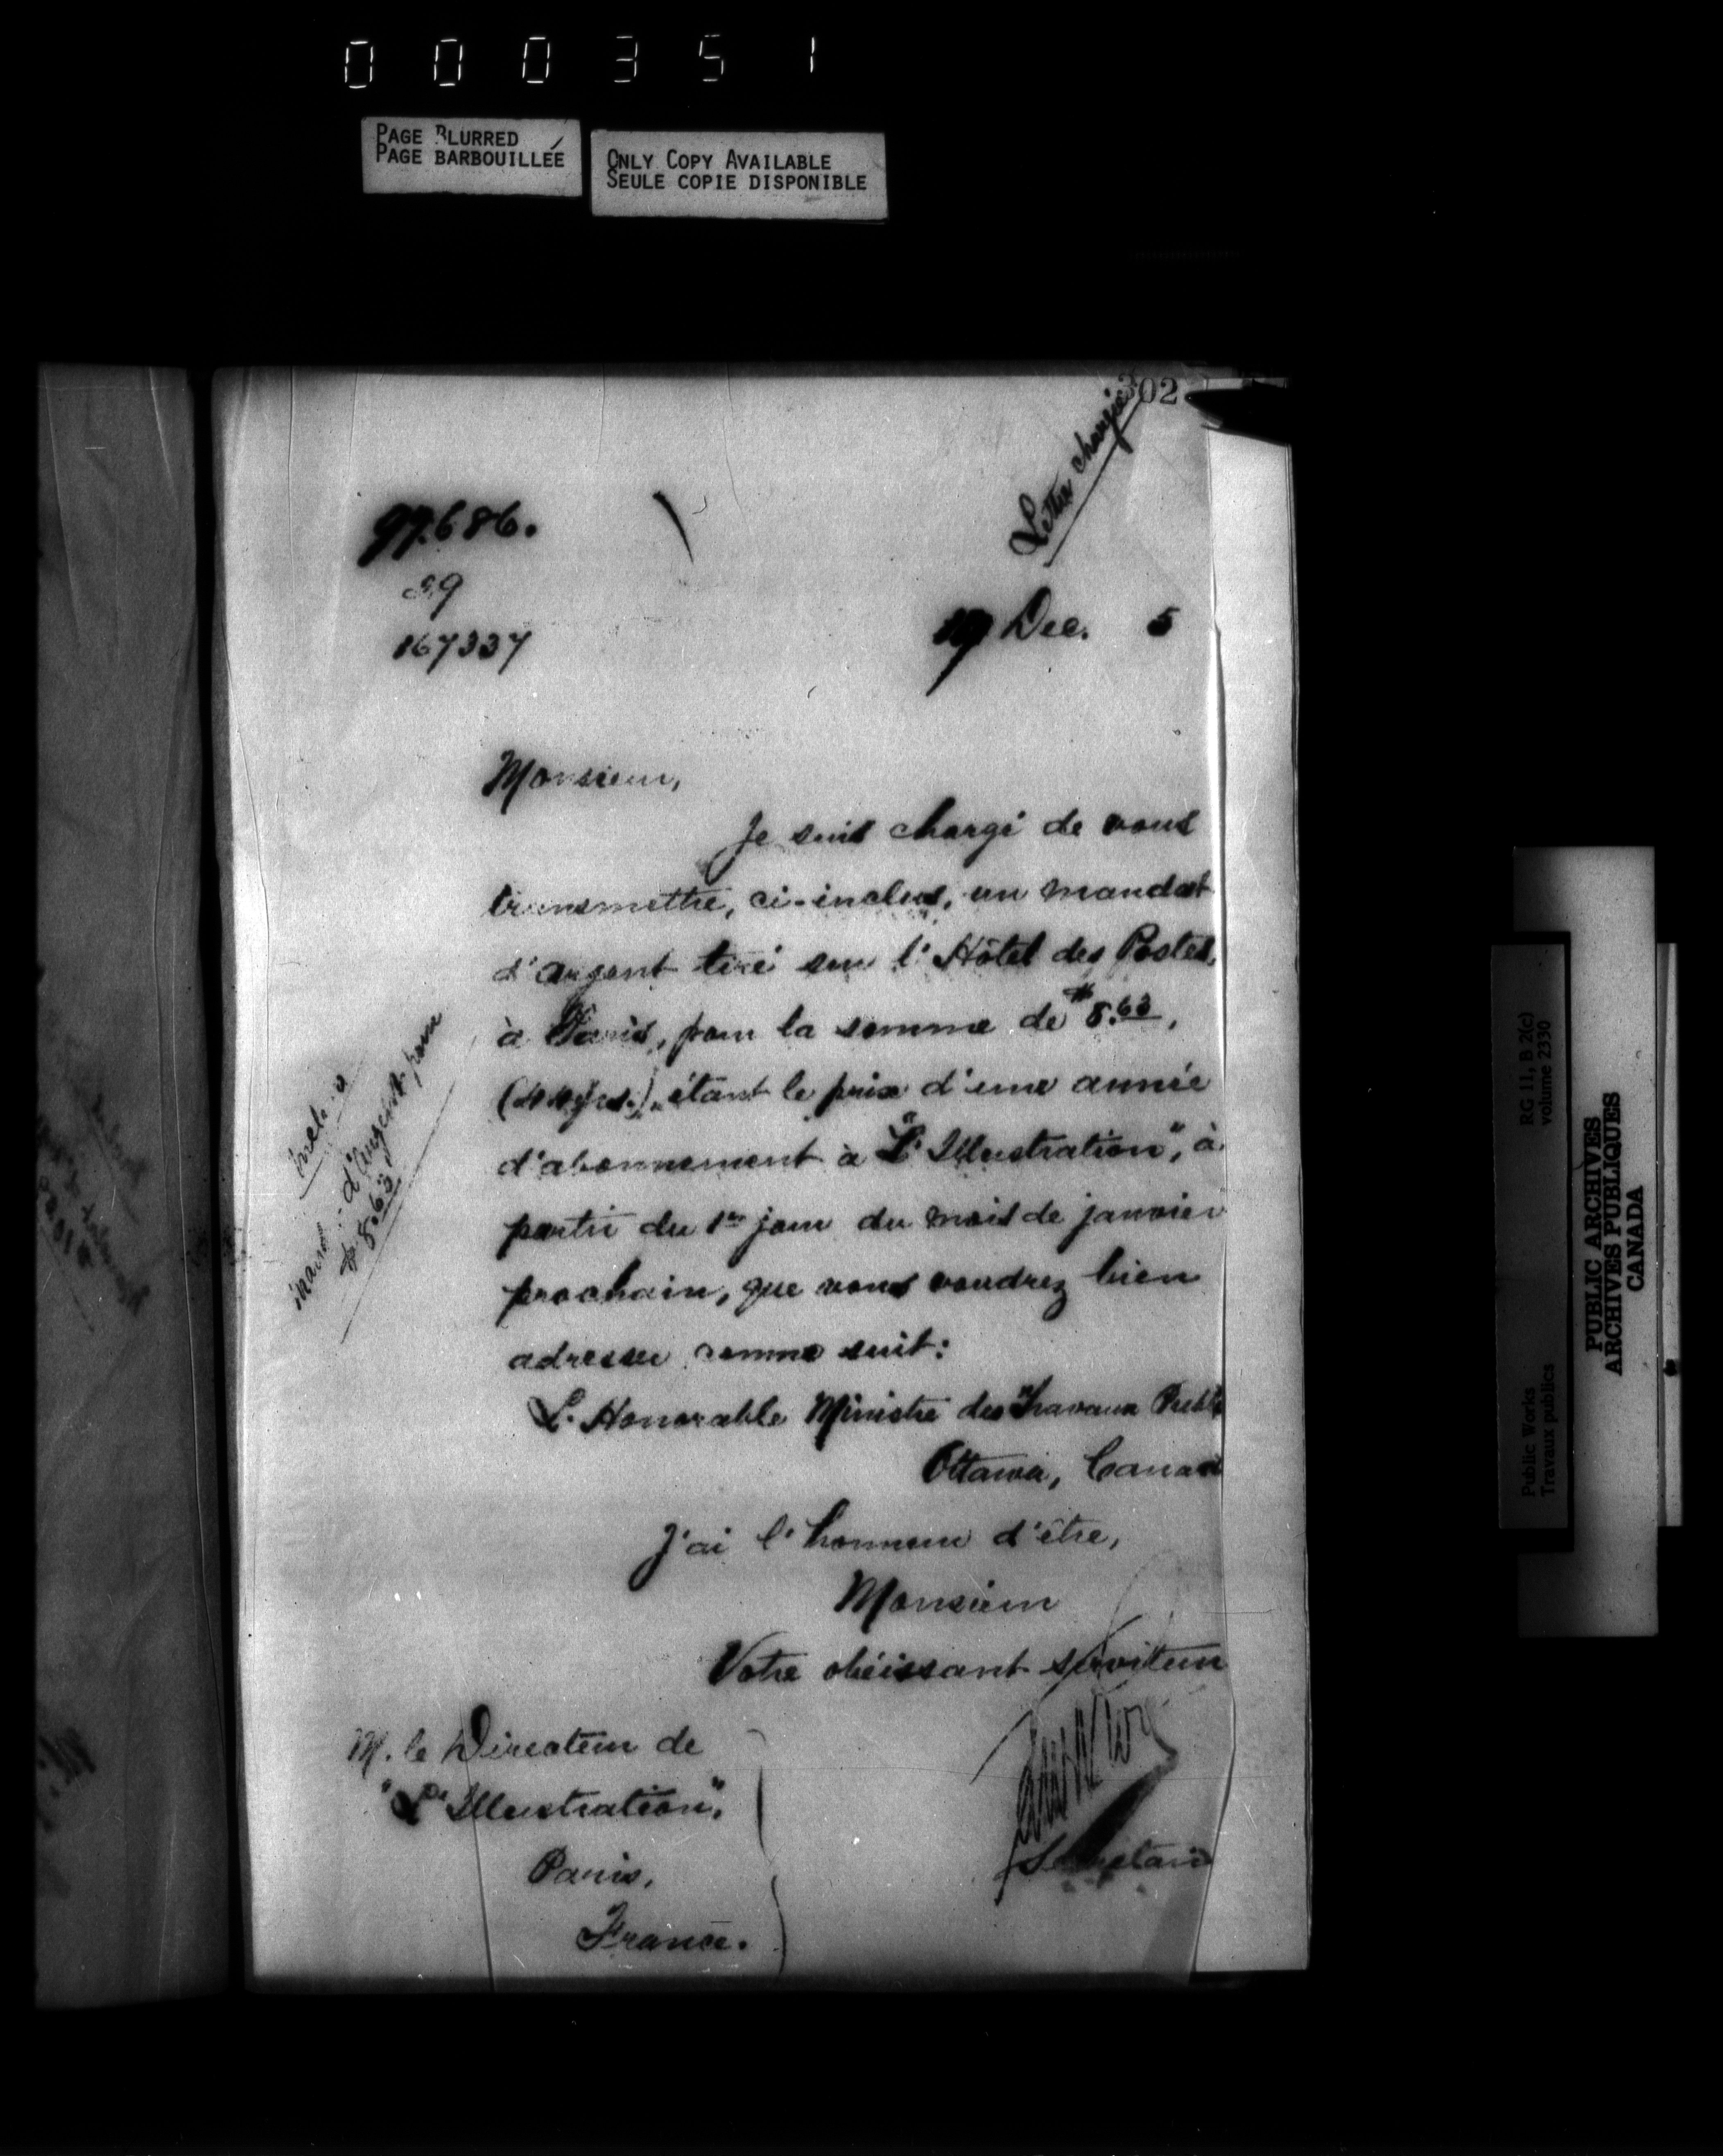 000351
PAGE BLURRED
PAGE BARBOUILLÉE
ONLY COPY AVAILABLE
SEULE COPIE DISPONIBLE
302
Lettre chargée
97.686.
39
167337
19 Dec. 5
Monsieur,
Je suis chargé de vous
transmettre, ci-inclus, un mandat
d'argent tiré sur l'Hôtel des Postes,
à Paris, pour la somme de $8.63,
étant le prix d'une année
d'abonnement à "L'Illustration", à
partir du 1er jour du mois de janvier
prochain, que vous voudrez bien
adresser comme suit:
L'Honorable Ministre des Travaux Publi
Ottawa, Canad
J'ai l'honneur d'être,
Monsieur
Votre obéissant serviteur
Secrétaire
M. le Directeur de
"L'Illustration",
Paris,
France.
inclus
d'argent pour
$8.63
RG 11, B 2(c)
volume 2330
Public Works
Travaux publics
PUBLIC ARCHIVES
ARCHIVES PUBLIQUES
CANADA